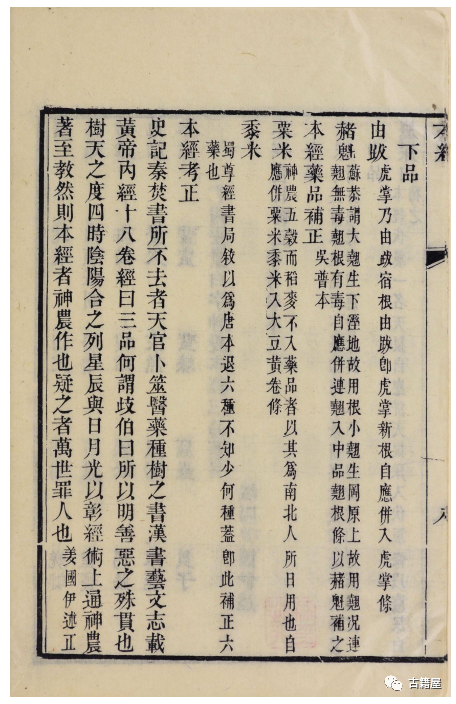 本經
八
下品
由跋 虎掌乃由跋宿根由跋卽虎掌新根自應併入虎掌條
赭魁 蘇恭謂大翹生下溼地故用根小翹生岡原上故用翹况連
翹無毒翹根有毒自應併連翹入中品翹根條以赭魁補之
本經藥品補正 吳普本
粟米 神農五穀而稻麥不入藥品者以其爲南北人所日用也自
應併粟米黍米入大豆黃卷條
黍米
蜀尊經書局敘以爲唐本退六種不知少何種蓋卽此補正六
藥也
本經考正
史記秦焚書所不去者天官卜筮醫藥種樹之書漢書藝文志載
黃帝內經十八卷經曰三品何謂歧伯曰所以明善惡之殊貫也
樹天之度四時陰陽合之列星辰與日月光以彰經術上通神農
著至教然則本經者神農作也疑之者萬世罪人也 姜國伊述正
古籍屋